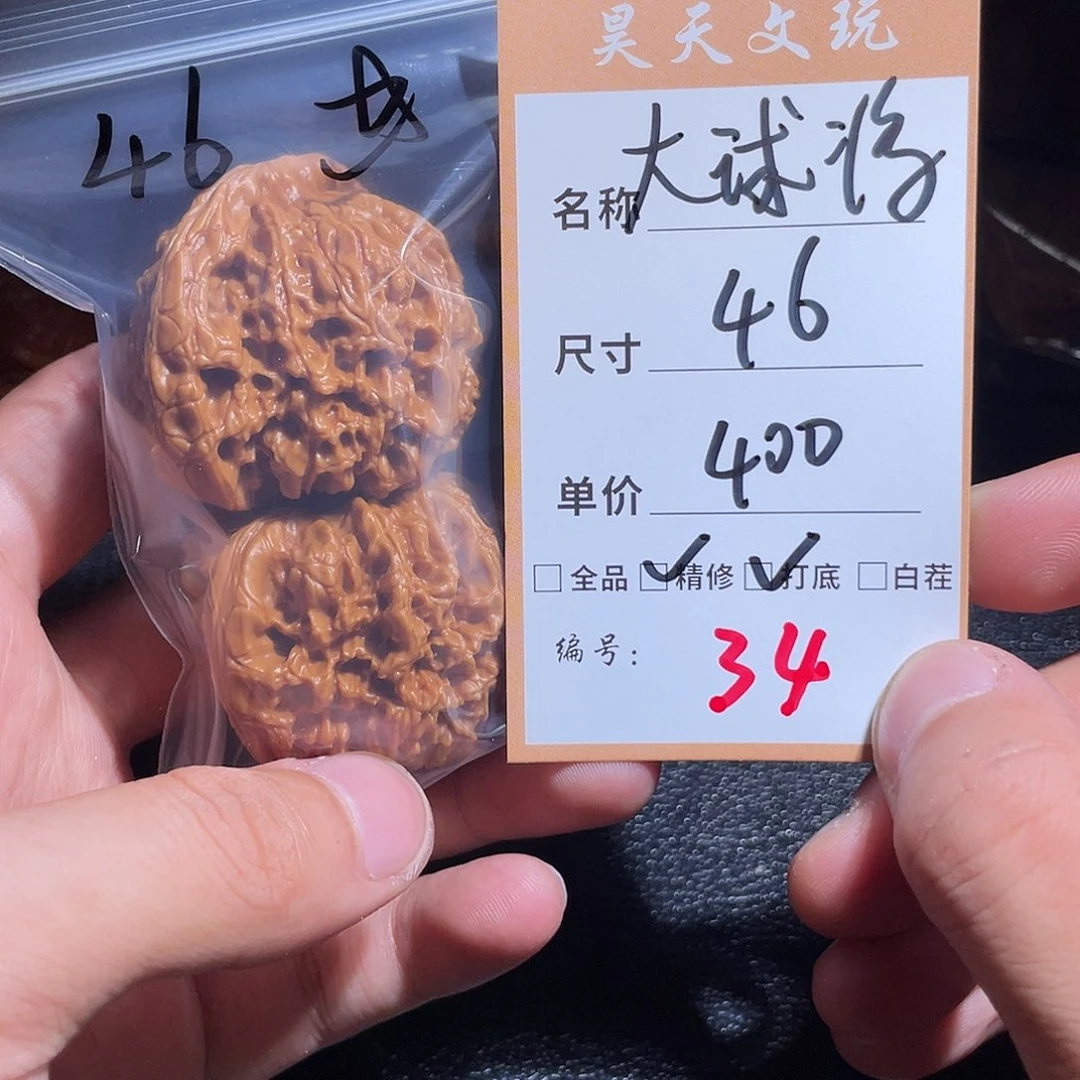 46
昊天文玩
名称 大球
尺寸 46
单价 400
□全品 ☑精修 ☑打底 □白茬
编号: 34